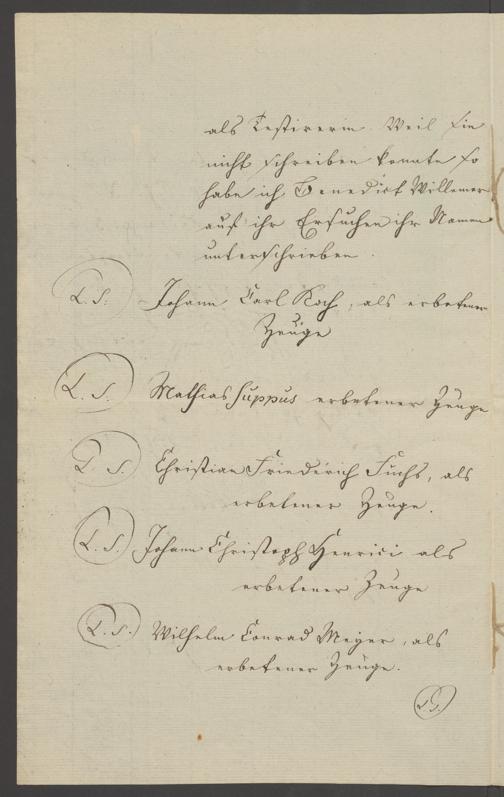 als Testirerin. Weil sie
nicht schreiben konnte so
habe ich Benedict Willemer
auf ihr Ersuchen ihr Namen
unterschrieben.
L. S. Johann Carl Koch, als erbetener
Zeuge
L. S. Mathias Suppus erbetener Zeuge
L. S. Christian Friederich Fuchs, als
erbetener Zeuge.
L. S. Johann Christoph Henrici als
erbetener Zeuge
L. S. Wilhelm Conrad Meyer, als
erbetener Zeuge.
L. S.